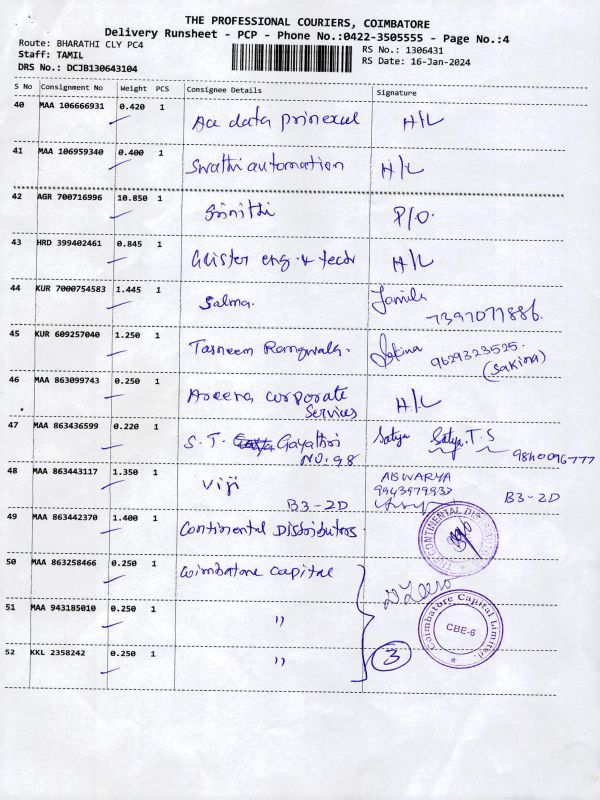 THE PROFESSIONAL COURIERS, COIMBATORE
Delivery Runsheet - PCP - Phone No.:0422-3505555 - Page No.:4
Route: BHARATHI CLY PC4
RS No.: 1306431
Staff: TAMIL
RS Date: 16-Jan-2024
DRS No.: DCJB130643104
S No Consignment No Weight PCS Consignee Details Signature
40 MAA 106666931 0.420 1 Ace data prinexcel H/L
41 MAA 106959340 0.400 1 Swathi automation H/L
42 AGR 700716996 10.850 1 Srinithi P/O.
43 HRD 399402461 0.845 1 Glister eng. & tech H/L
44 KUR 7000754583 1.445 1 Salma. Jamila
7397077886.
45 KUR 609257040 1.250 1 Tasneem Rangwala. Sakina
9629323525.
(Sakina)
46 MAA 863099743 0.250 1 Areena corporate
Services H/L
47 MAA 863436599 0.220 1 S.T. Gayathri Satya Satya.T.S
NO.98 9840096777
48 MAA 863443117 1.350 1 Viji AISWARYA
B3-2D 9943979937 B3-2D
49 MAA 863442370 1.400 1 Continental Distributors
THE CONTINENTAL DISTRIBUTORS
50 MAA 863258466 0.250 1 Coimbatore capital
51 MAA 943185010 0.250 1 "
Coimbatore Capital Limited.
CBE-6
52 KKL 2358242 0.250 1 " 3